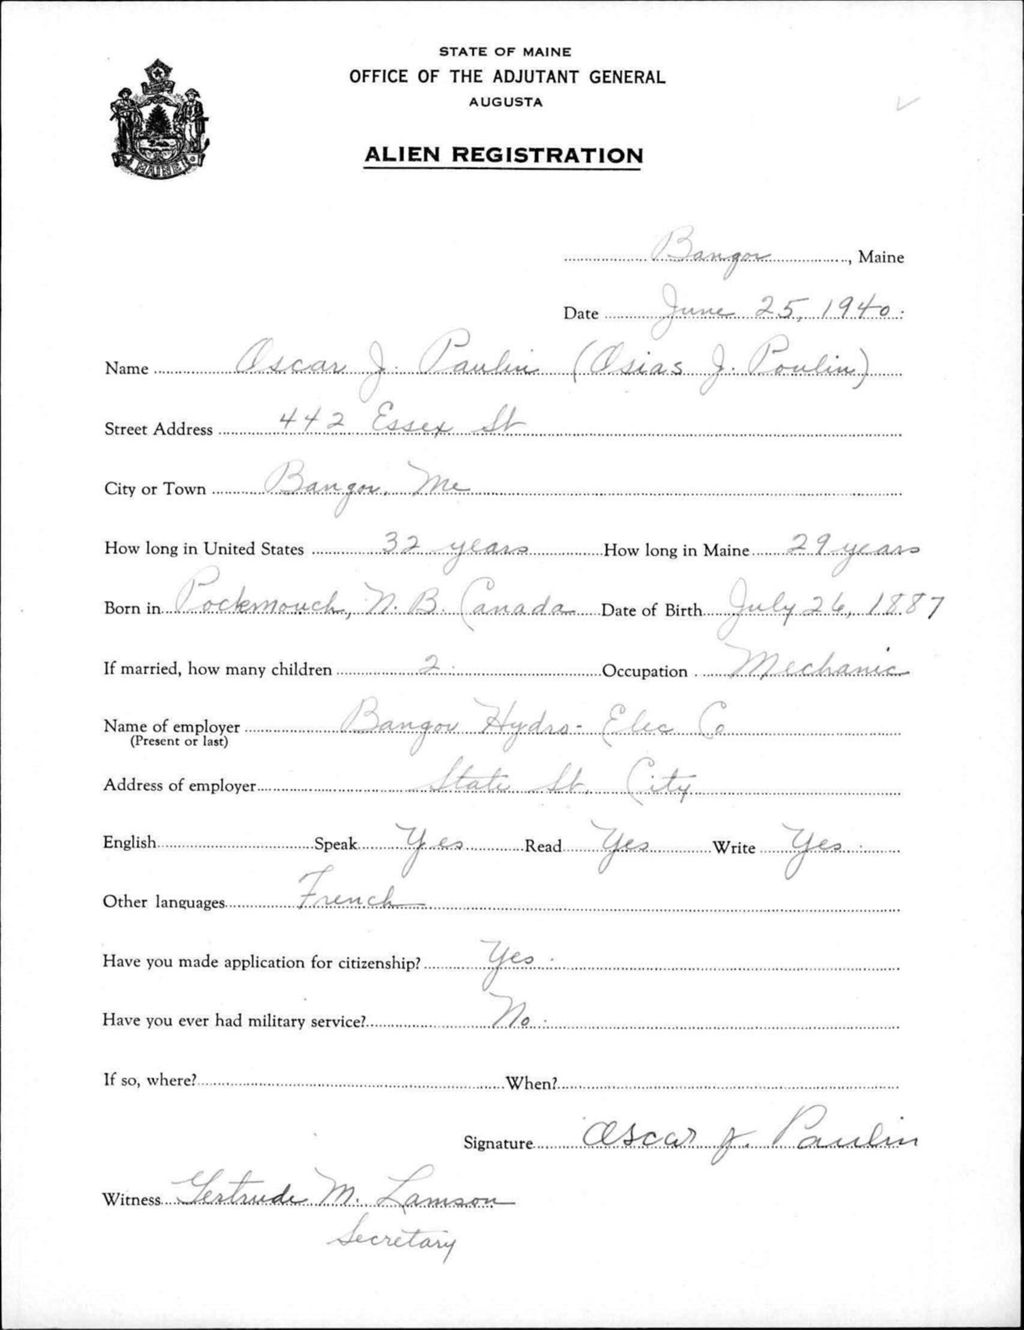 STATE OF MAINE
OFFICE OF THE ADJUTANT GENERAL
AUGUSTA
ALIEN REGISTRATION
MAINE
Bangor, Maine
Date June 25, 1940.
Name Oscar J. Paulin (Osias J. Poulin)
Street Address 442 Essex St
City or Town Bangor, Me
How long in United States 32 years How long in Maine 29 years
Born in Pockmouch, N.B. Canada Date of Birth July 26, 1887
If married, how many children 2 Occupation Mechanic
Name of employer Bangor Hydro-Elec Co
(Present or last)
Address of employer State St. City
English Speak Yes Read Yes Write Yes
Other languages French
Have you made application for citizenship? Yes
Have you ever had military service? No
If so, where? When?
Signature Oscar J. Paulin
Witness Gertrude M. Lamson
Secretary